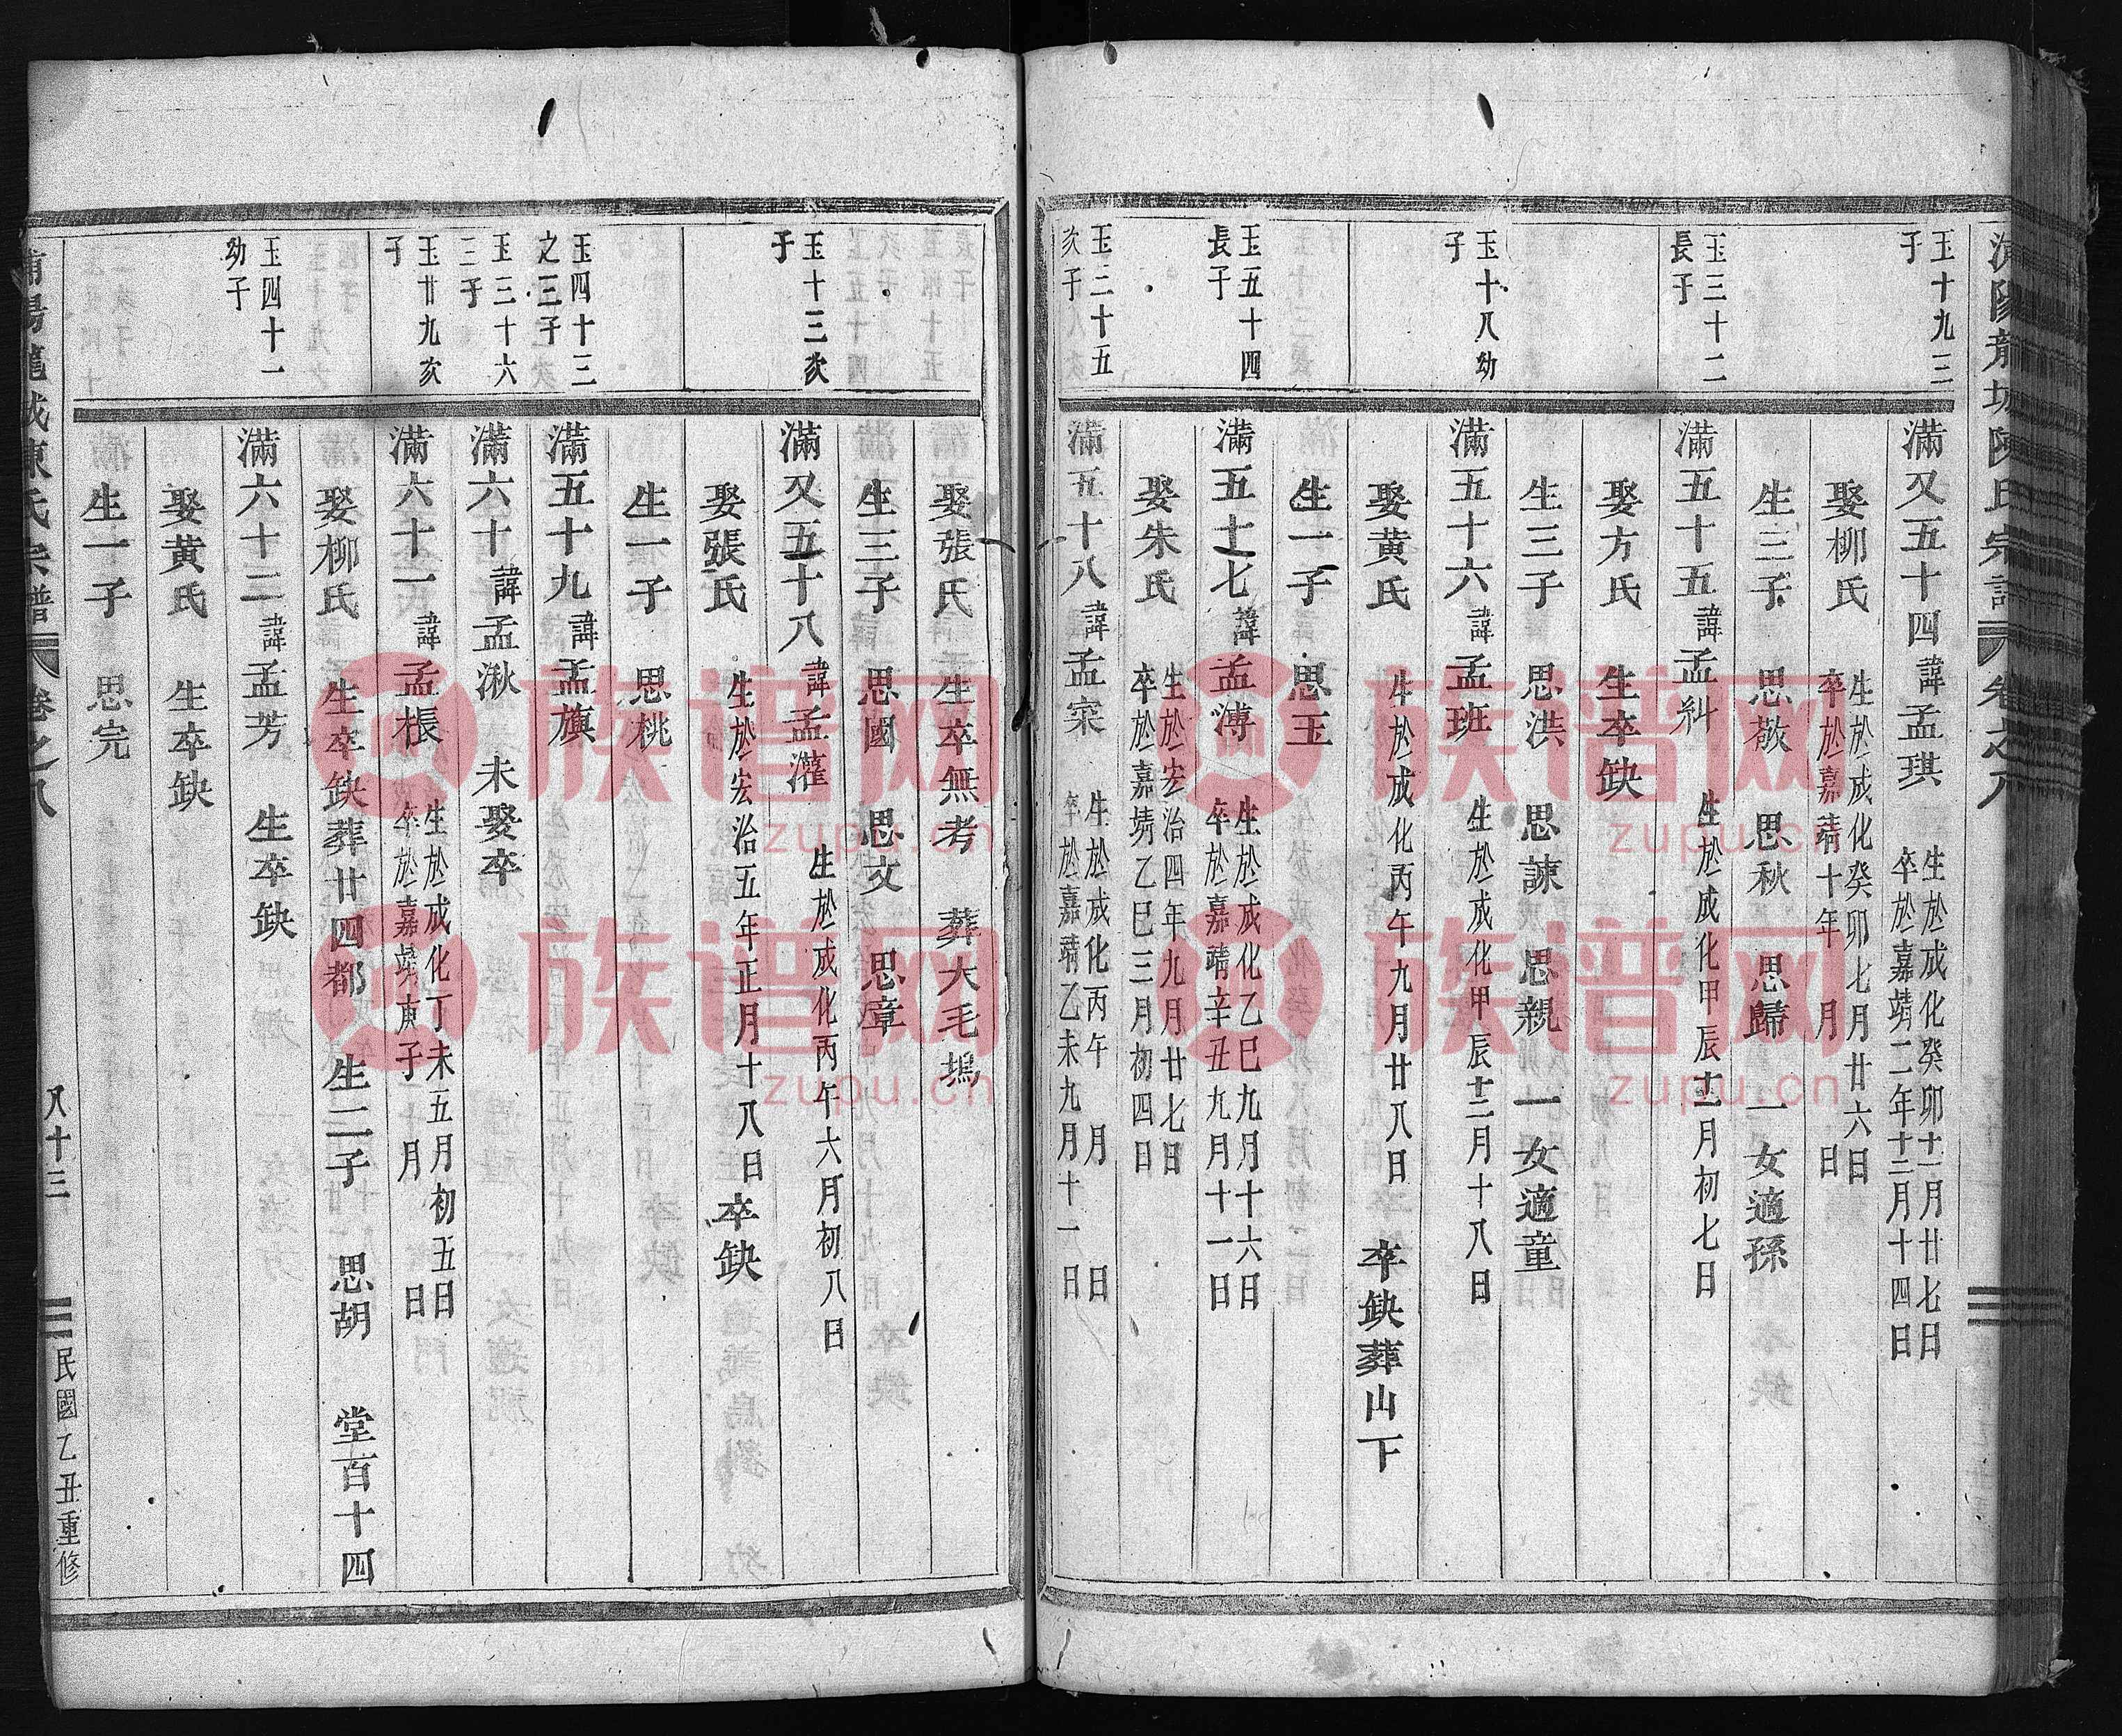 玉十九三
子
滿又五十四諱孟琪
生於成化癸卯十一月廿七日
卒於嘉靖二年十二月十四日
娶柳氏
生於成化癸卯七月廿六日
卒於嘉靖十年 月 日
生三子 思敬 思秋 思歸 一女適孫
玉三十二
長子
滿五十五諱孟糾 生於成化甲辰十二月初七日
娶方氏 生卒缺
生三子 思洪 思諫 思親 一女適童
玉十八幼
子
滿五十六諱孟班 生於成化甲辰十二月十八日
娶黃氏 生於成化丙午九月廿八日 卒缺葬山下
生一子 思玉
玉五十四
長子
滿五十七諱孟溥
生於成化乙巳九月十六日
卒於嘉靖辛丑九月十一日
娶朱氏
生於宏治四年九月廿七日
卒於嘉靖乙巳三月初四日
玉三十五
次子
滿五十八諱孟寀
生於成化丙午 月 日
卒於嘉靖乙未九月十一日
娶張氏 生卒無考 葬大毛塢
生三子 思國 思文 思章
玉十三次
子
滿又五十八諱孟灌 生於成化丙午六月初八日
娶張氏 生於宏治五年正月十八日 卒缺
生一子 思桃
玉四十三
之三子
滿五十九諱孟旗
玉三十六
三子
滿六十諱孟湫 未娶卒
玉廿九次
子
滿六十一諱孟棖
生於成化丁未五月初五日
卒於嘉靖庚子 月 日
娶柳氏 生卒缺葬廿四都 生二子 思胡 堂百十四
玉四十一
幼子
滿六十二諱孟芳 生卒缺
娶黃氏 生卒缺
生一子 思完
浦陽龍城陳氏宗譜 卷之八 八十三 民國乙丑重修
族谱网
zupu.cn
族谱网
zupu.cn
族谱网
zupu.cn
族谱网
zupu.cn